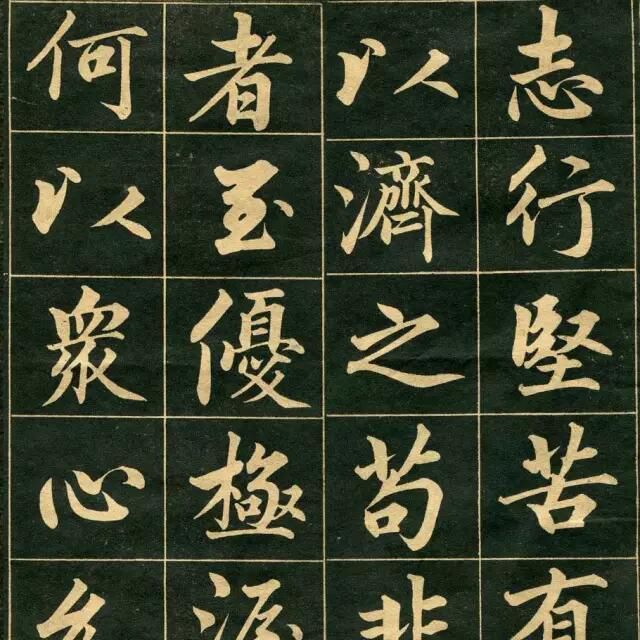 志行堅苦有
以濟之苟非
者至優極渥
何以衆心